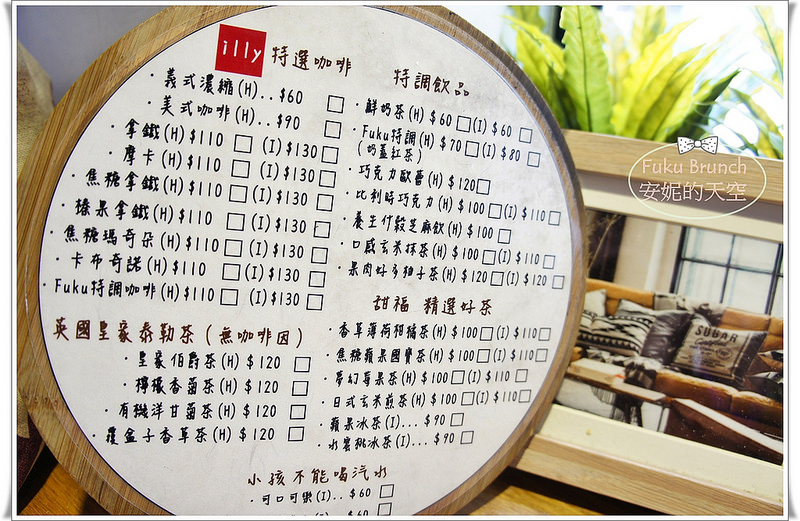 illy 特選咖啡
・義式濃縮(H)..$60
・美式咖啡(H)..$90
・拿鐵(H)$110 (I)$130
・摩卡(H)$110 (I)$130
・焦糖拿鐵(H)$110 (I)$130
・榛果拿鐵(H)$110 (I)$130
・焦糖瑪奇朵(H)$110 (I)$130
・卡布奇諾(H)$110 (I)$130
・Fuku特調咖啡(H)$110 (I)$130
英國皇家泰勒茶(無咖啡因)
・皇家伯爵茶(H) $120
・檸檬香薗茶(H) $120
・有機洋甘菊茶(H) $120
・覆盆子香草茶(H) $120
特調飲品
・鮮奶茶(H)$60 (I)$60
・Fuku特調(H)$70 (I)$80
(奶蓋紅茶)
・巧克力歐蕾(H)$120
・比利時巧克力(H)$100 (I)$110
・養生什穀芝麻飲(H)$100
・口感玄米抹茶(H)$100 (I)$110
・果肉好多柚子茶(H)$120 (I)$120
甜福 精選好茶
・香草薄荷柑橘茶(H)$100 (I)$110
・焦糖蘋果國寶茶(H)$100 (I)$110
・夢幻莓果茶(H)$100 (I)$110
・日式玄米煎茶(H)$100 (I)$110
・蘋果冰茶(I)...$90
・水蜜桃冰茶(I)...$90
小孩不能喝汽水
・可口可樂(I)..$60
$60
Fuku Brunch
安妮的天空
SUGAR